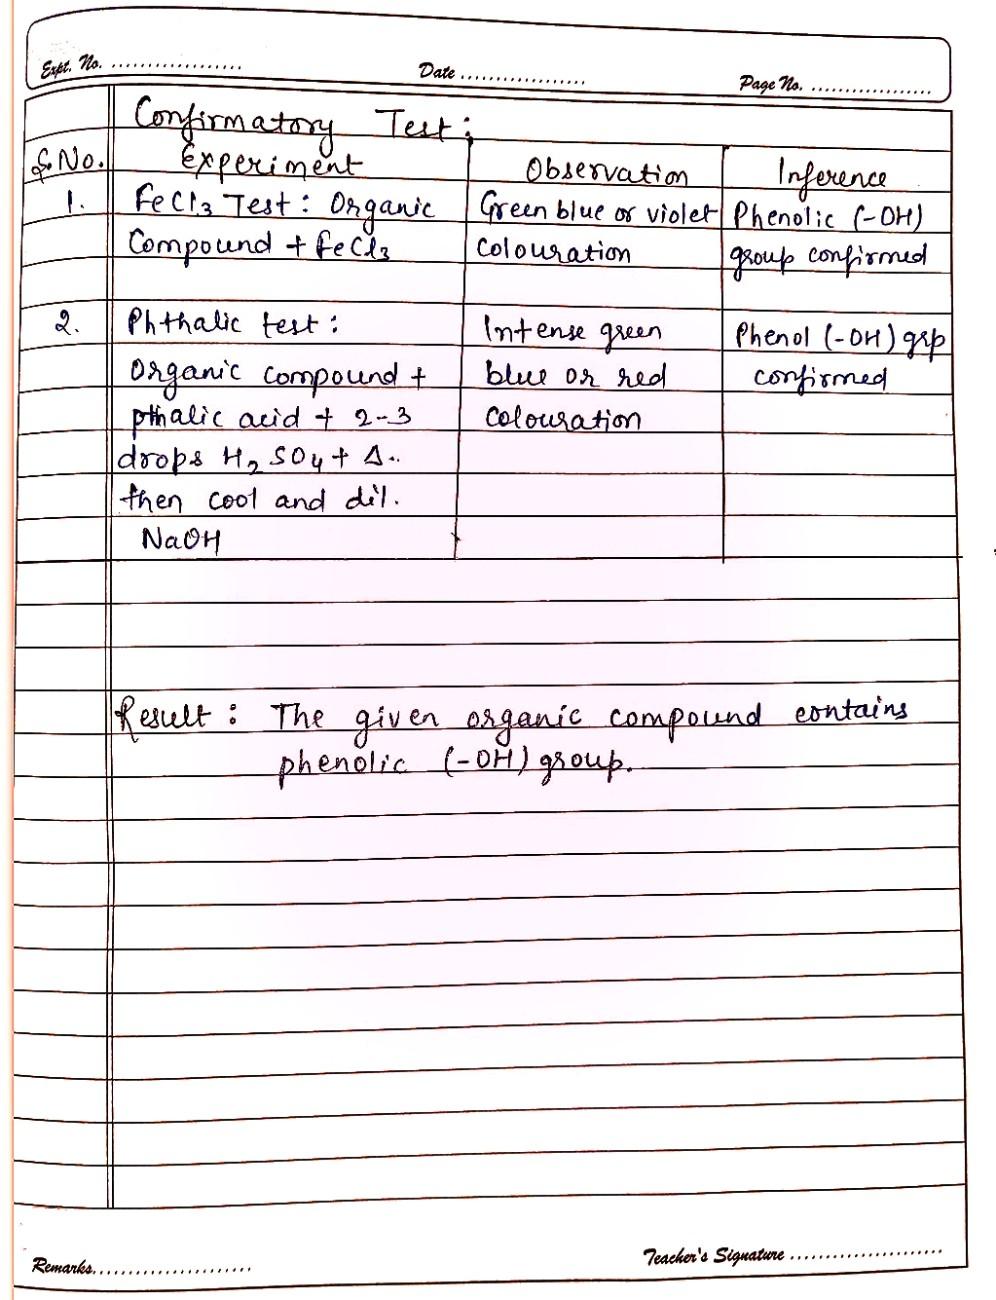 Expt. No. ..................
Date ..................
Page No. ..................
Confirmatory Test:
S.No. Experiment Observation Inference
1. FeCl3 Test: Organic Green blue or violet Phenolic (-OH)
Compound + FeCl3 colouration group confirmed
2. Phthalic test: Intense green Phenol (-OH) grp
Organic compound + blue or red confirmed
pthalic acid + 2-3 colouration
drops H2SO4 + Δ..
then cool and dil.
NaOH
Result: The given organic compound contains
phenolic (-OH) group.
Teacher's Signature ......................
Remarks......................